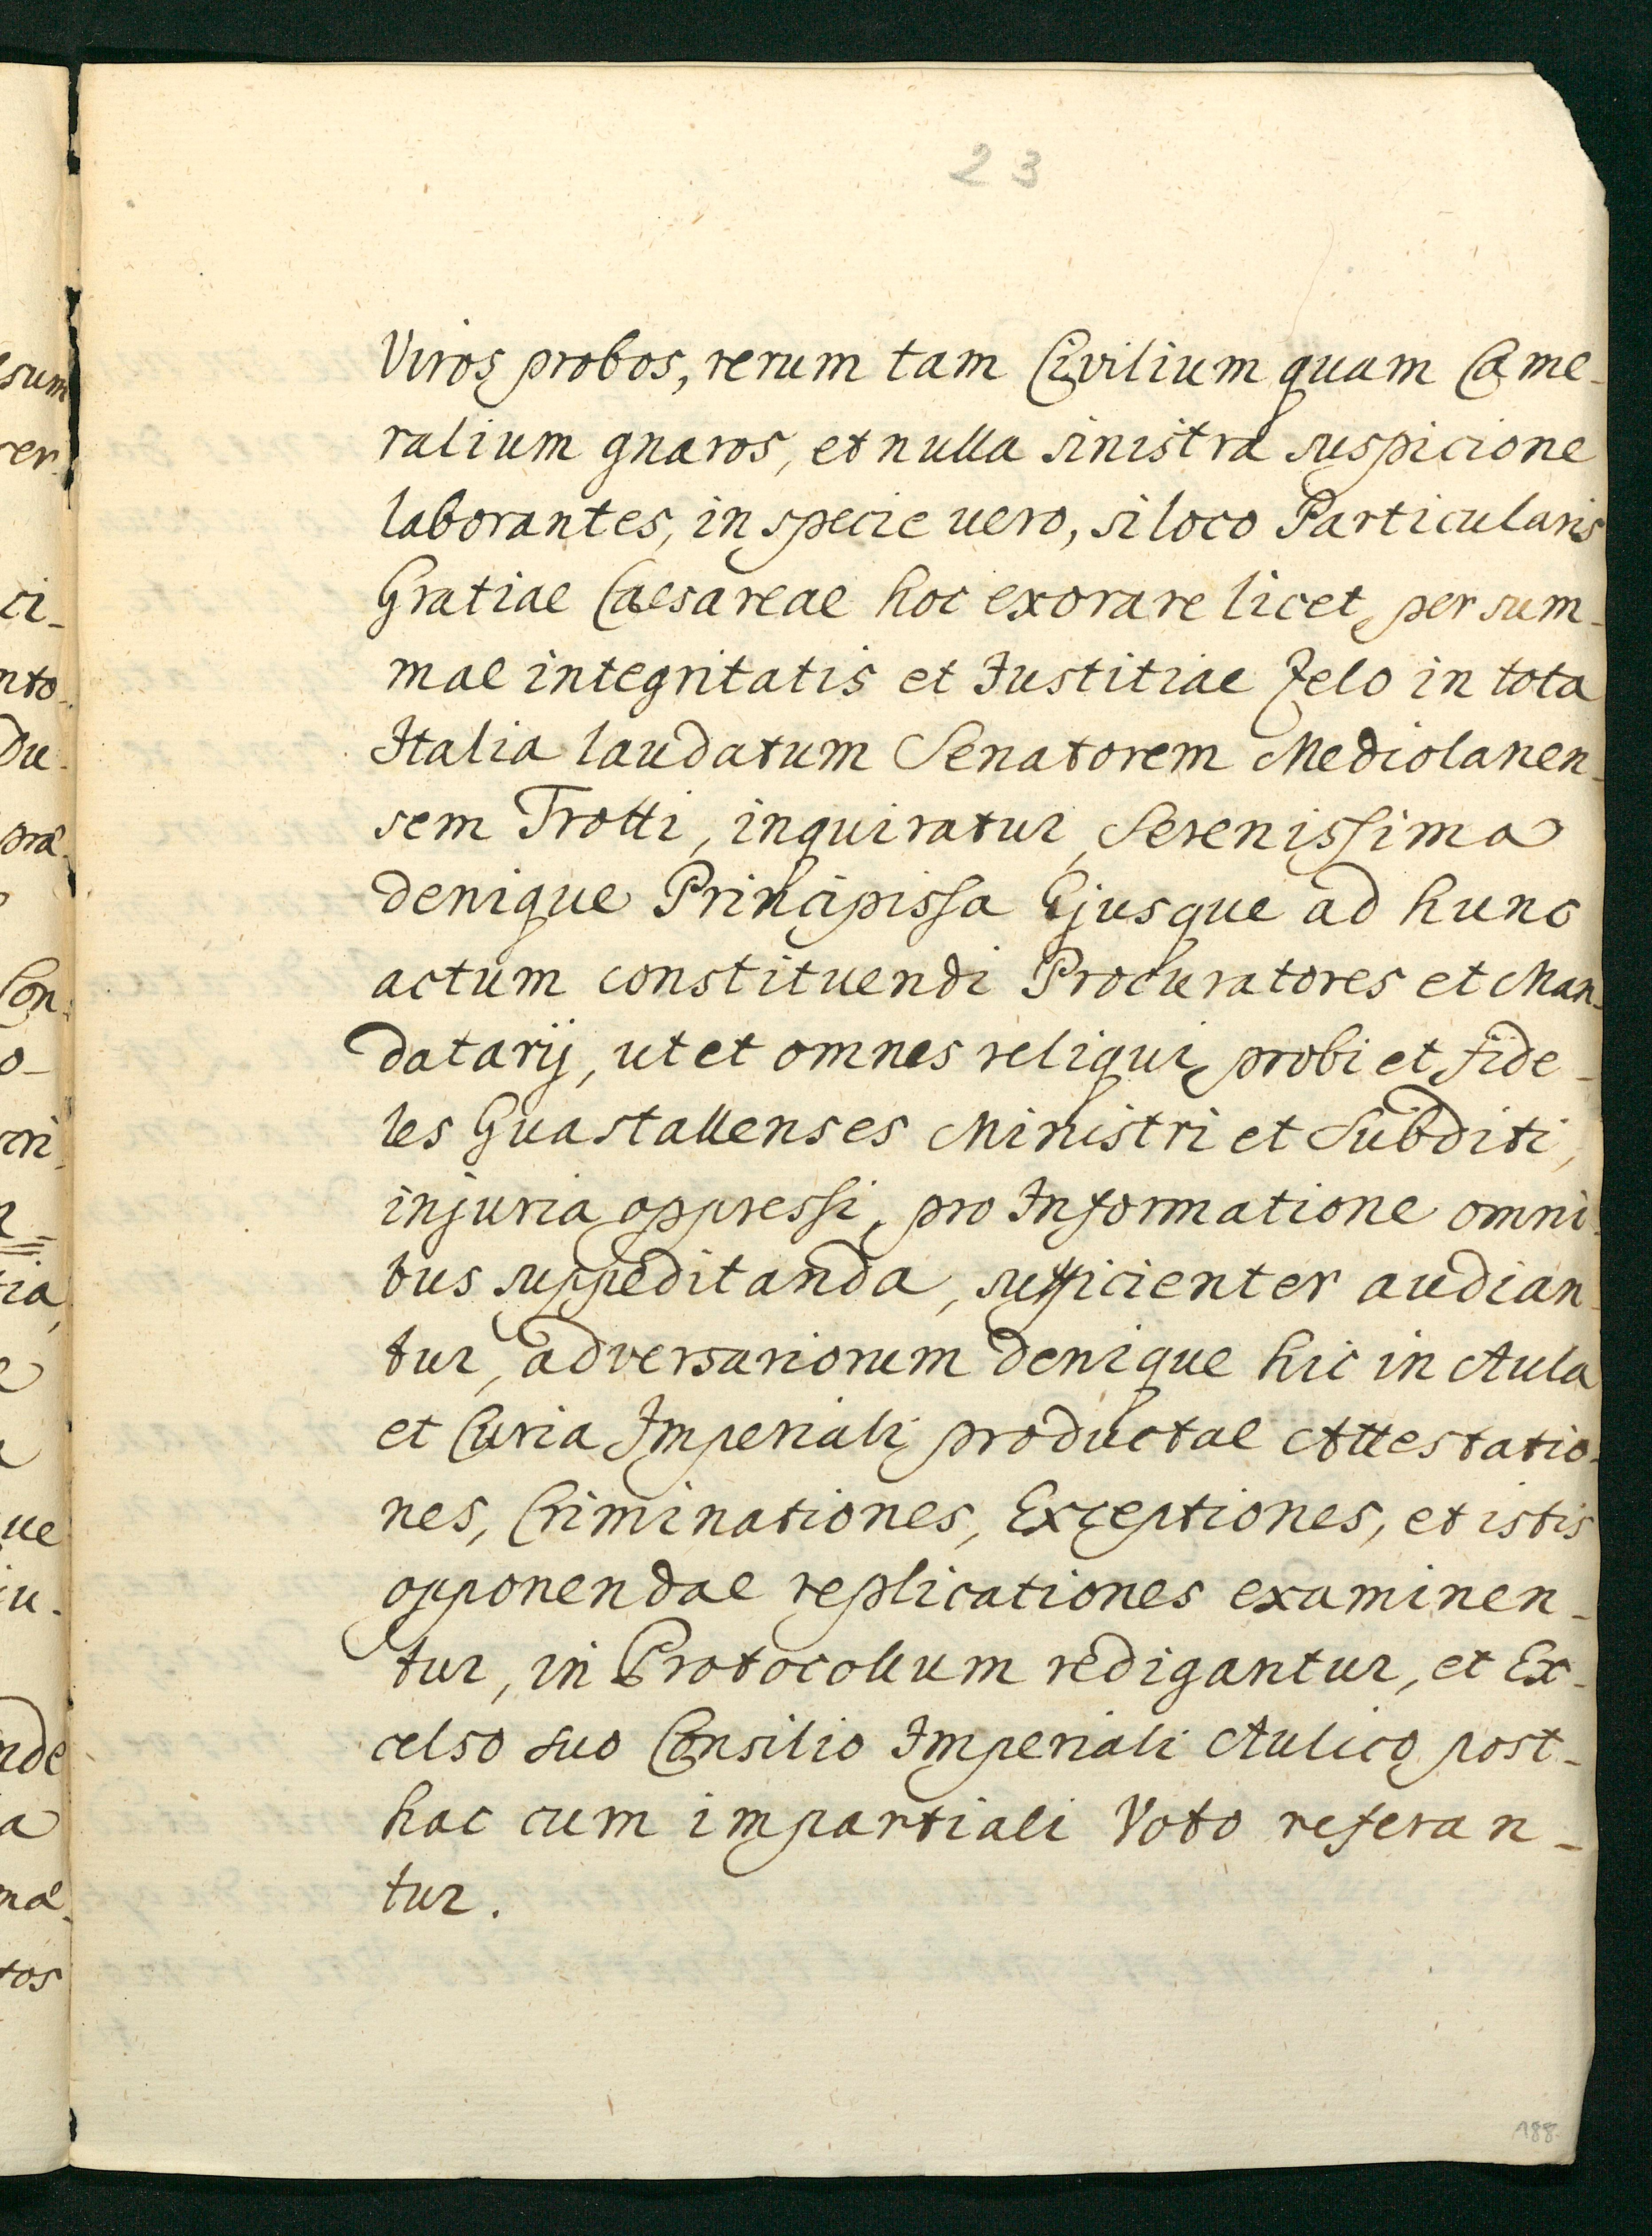 23
Viros probos, rerum tam Civilium quam Came-
ralium gnaros, et nulla sinistra suspicione
laborantes, in specie vero, si loco Particularis
Gratiae Caesareae hoc exorare licet, per sum-
mae integritatis et Justitiae Zelo in tota
Italia laudatum Senatorem Mediolanen-
sem Trotti, inquiratur, Serenissima
denique Principissa Ejusque ad hunc
actum constituendi Procuratores et Man-
datarij, ut et omnes reliqui probi et fide-
les Guastallenses Ministri et Subditi,
injuria oppressi, pro Informatione omni-
bus suppeditanda, sufficienter audian-
tur, adversariorum denique hic in Aula
et Curia Imperiali productae Attestatio-
nes, Criminationes, Exceptiones, et istis
opponendae replicationes examinen-
tur, in Protocollum redigantur, et Ex-
celso suo Consilio Imperiali Aulico post-
hac cum impartiali Voto referan-
tur.
188.